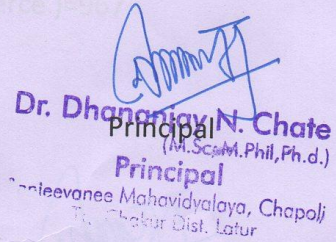 Dr. Dhananjay N. Chate
Principal
(M.Sc.M.Phil,Ph.d.)
Principal
Sanjeevanee Mahavidyalaya, Chapoli
Tq. Chakur Dist. Latur